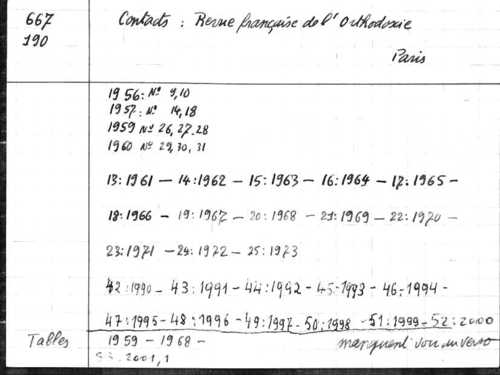 667
190
Contacts : Revue française de l'Orthodoxie
Paris
1956: Nº 9,10
1957: Nº 14,18
1959 Nº 26,27-28
1960 Nº 29,30,31
13:1961 – 14:1962 – 15:1963 – 16:1964 – 17:1965 –
18:1966 – 19:1967 – 20:1968 – 21:1969 – 22:1970 –
23:1971 – 24:1972 – 25:1973
42:1990 – 43:1991 – 44:1992 – 45:1993 – 46:1994 –
47:1995 – 48:1996 – 49:1997 – 50:1998 – 51:1999 – 52:2000
Tables 1959 – 1968 – manquent voir au verso
53:2001,1